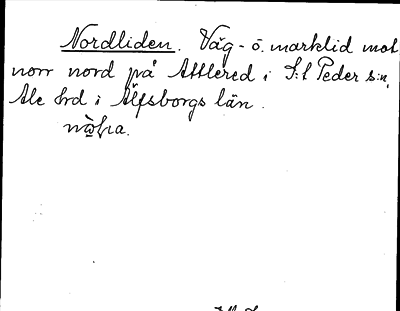 Nordliden. Väg- o. marklid mot
norr nord på Attlered i S:t Peder s:n,
Ale hrd i Älfsborgs län.